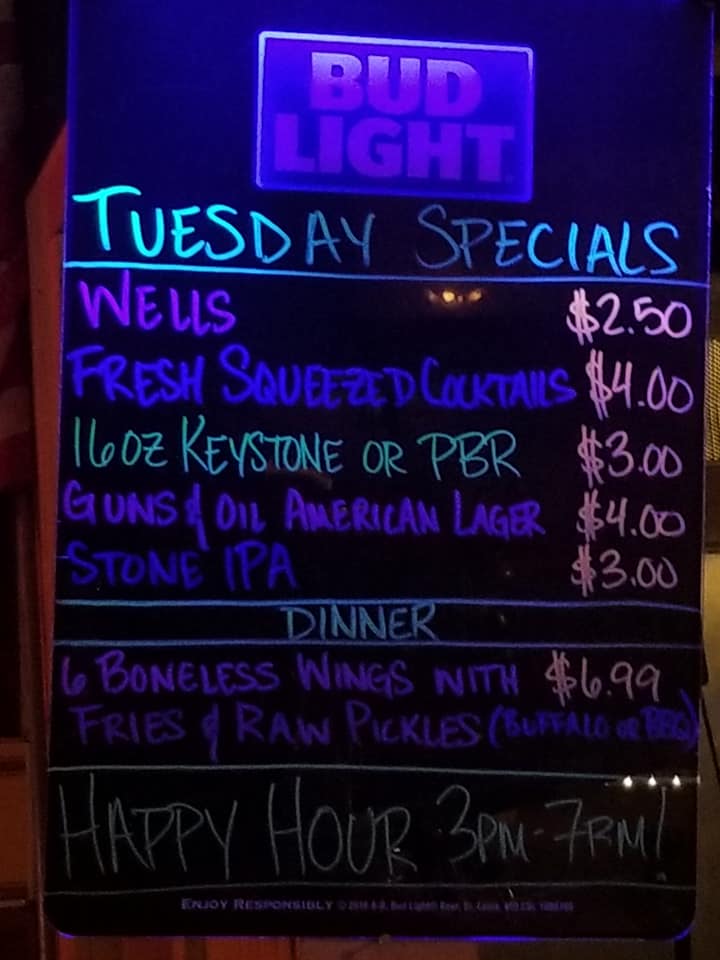 BUD
LIGHT
TUESDAY SPECIALS
WELLS $2.50
FRESH SQUEEZED COCKTAILS $4.00
16OZ KEYSTONE OR PBR $3.00
GUNS & OIL AMERICAN LAGER $4.00
STONE IPA $3.00
DINNER
6 BONELESS WINGS WITH $6.99
FRIES & RAW PICKLES (BUFFALO OR BBQ)
HAPPY HOUR 3PM-7PM!
ENJOY RESPONSIBLY